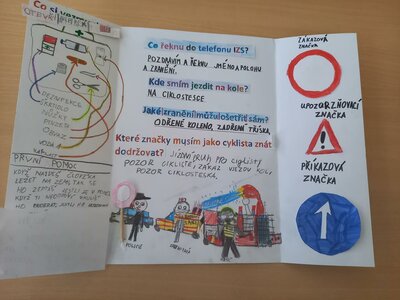 Co si vezmu
OTEVŘI
DEZINFEKCE
ŠKRTIDLO
NŮŽKY
PINZETA
OBVAZ
VODA
PRVNÍ POMOC
KDYŽ NAJDEŠ ČLOVĚKA
LEŽET NA ZEMI TAK SE
HO ZEPTÁŠ JESTLI JE V POŘÁDKU
KDYŽ TI NEODPOVÍ MUSÍŠ
Co řeknu do telefonu IZS?
POZDRAVÍM A ŘEKNU JMÉNO A POLOHU
A ZRANĚNÍ.
Kde smím jezdit na kole?
NA CIKLOSTESCE
Jaké zranění můžu ošetřit sám?
ODŘENÉ KOLENO, ZADŘENÍ TŘÍSKA,
Které značky musím jako cyklista znát a
dodržovat? JÍZDNÍ PRUH PRO CYKLISTY
POZOR CYKLISTÉ, ZÁKAZ VJEZDU KOL,
POZOR CIKLOSTESKA,
POLICIE
HASIČ
ZÁKAZOVÁ
ZNAČKA
UPOZORŇOVACÍ
ZNAČKA
PŘÍKAZOVÁ
ZNAČKA